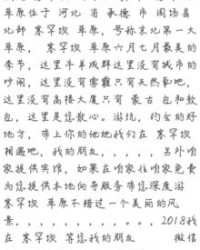 草原位于 河北 省 承德 市 围场县
北部 塞罕坝 草原，号称东北第一大
草原， 塞罕坝 草原六月七月最美的
季节，这里牛羊成群这里没有城市的
吵闹，这里没有雾霾只有天然氧吧，
这里没有高楼大厦只有 蒙古 包和敖
包，这里是您散心。游玩，约会的好
地方，带上你的他她我们在 塞罕坝
相遇吧，我的朋友，，，，，另外咱
家提供宾馆，如果在咱家住咱家免费
为您提供本地向导服务带您深度游
塞罕坝 草原不错过一个美丽的风
景，，，，，，，。。，，2018我
在 塞罕坝 等您我的朋友 微信